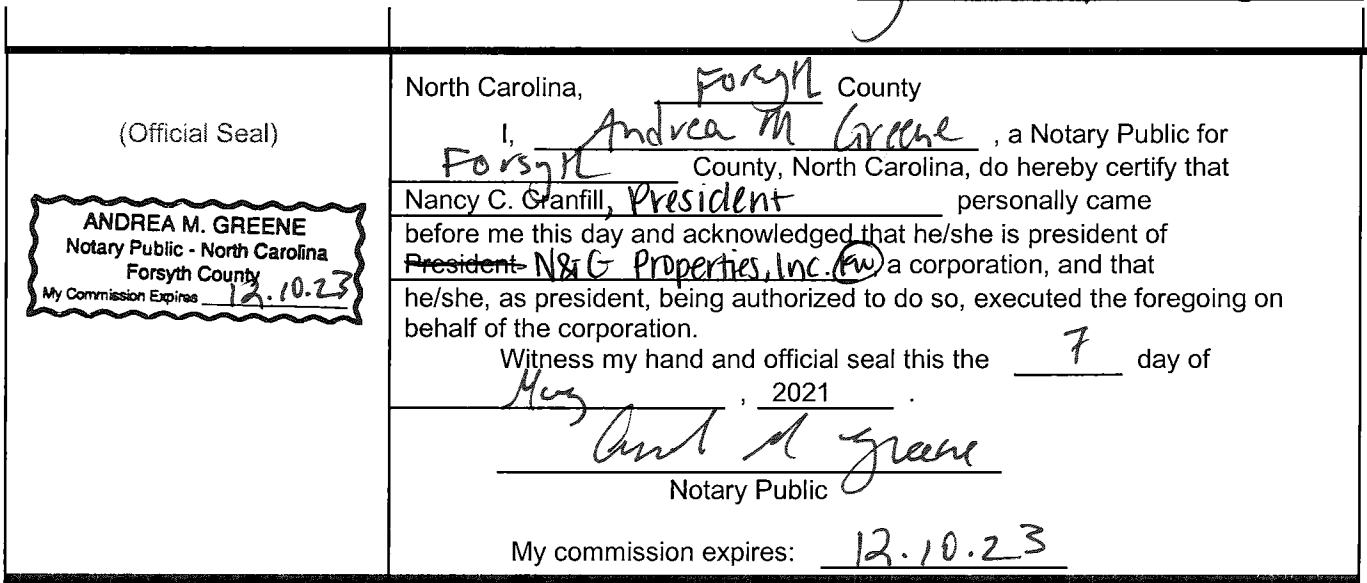 (Official Seal)
ANDREA M. GREENE
Notary Public - North Carolina
Forsyth County
My Commission Expires 12.10.23
North Carolina, Forsyth County
I, Andrea M Greene , a Notary Public for
Forsyth County, North Carolina, do hereby certify that
Nancy C. Granfill, President personally came
before me this day and acknowledged that he/she is president of
President N&G Properties, Inc. KW a corporation, and that
he/she, as president, being authorized to do so, executed the foregoing on
behalf of the corporation.
Witness my hand and official seal this the 7 day of
May , 2021 .
Andrea M Greene
Notary Public
My commission expires: 12.10.23